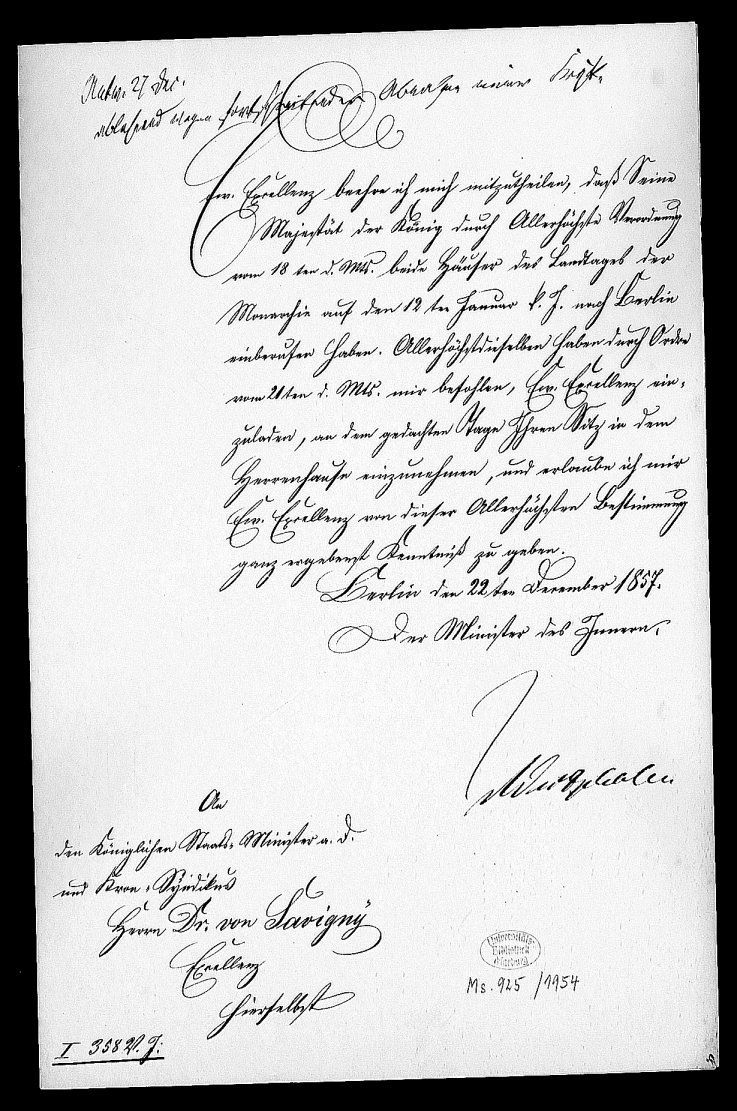 Antw. 27 Dec.
ablehnend wegen fortschreitender Abnahme meiner Kräfte.
Ew. Excellenz beehre ich mich mitzutheilen, daß Seine
Majestät der König durch Allerhöchste Verordnung
vom 18 ten d. Mts. beide Häuser des Landtages der
Monarchie auf den 12 ten Januar k. J. nach Berlin
einberufen haben. Allerhöchstdieselben haben durch Ordre
vom 21ten d. Mts. mir befohlen, Ew. Excellenz ein-
zuladen, an dem gedachten Tage Ihren Sitz in dem
Herrenhause einzunehmen, und erlaube ich mir
Ew. Excellenz von dieser Allerhöchsten Bestimmung
ganz ergebenst Kenntniß zu geben.
Berlin den 22 ten December 1857.
Der Minister des Innern.
Westphalen
An
den Königlichen Staats-Minister a. D.
und Kron-Syndikus
Herrn Dr. von Savigny
Excellenz
hierselbst
Universitäts-
Bibliothek
Marburg
Ms. 925 / 1954
I 358